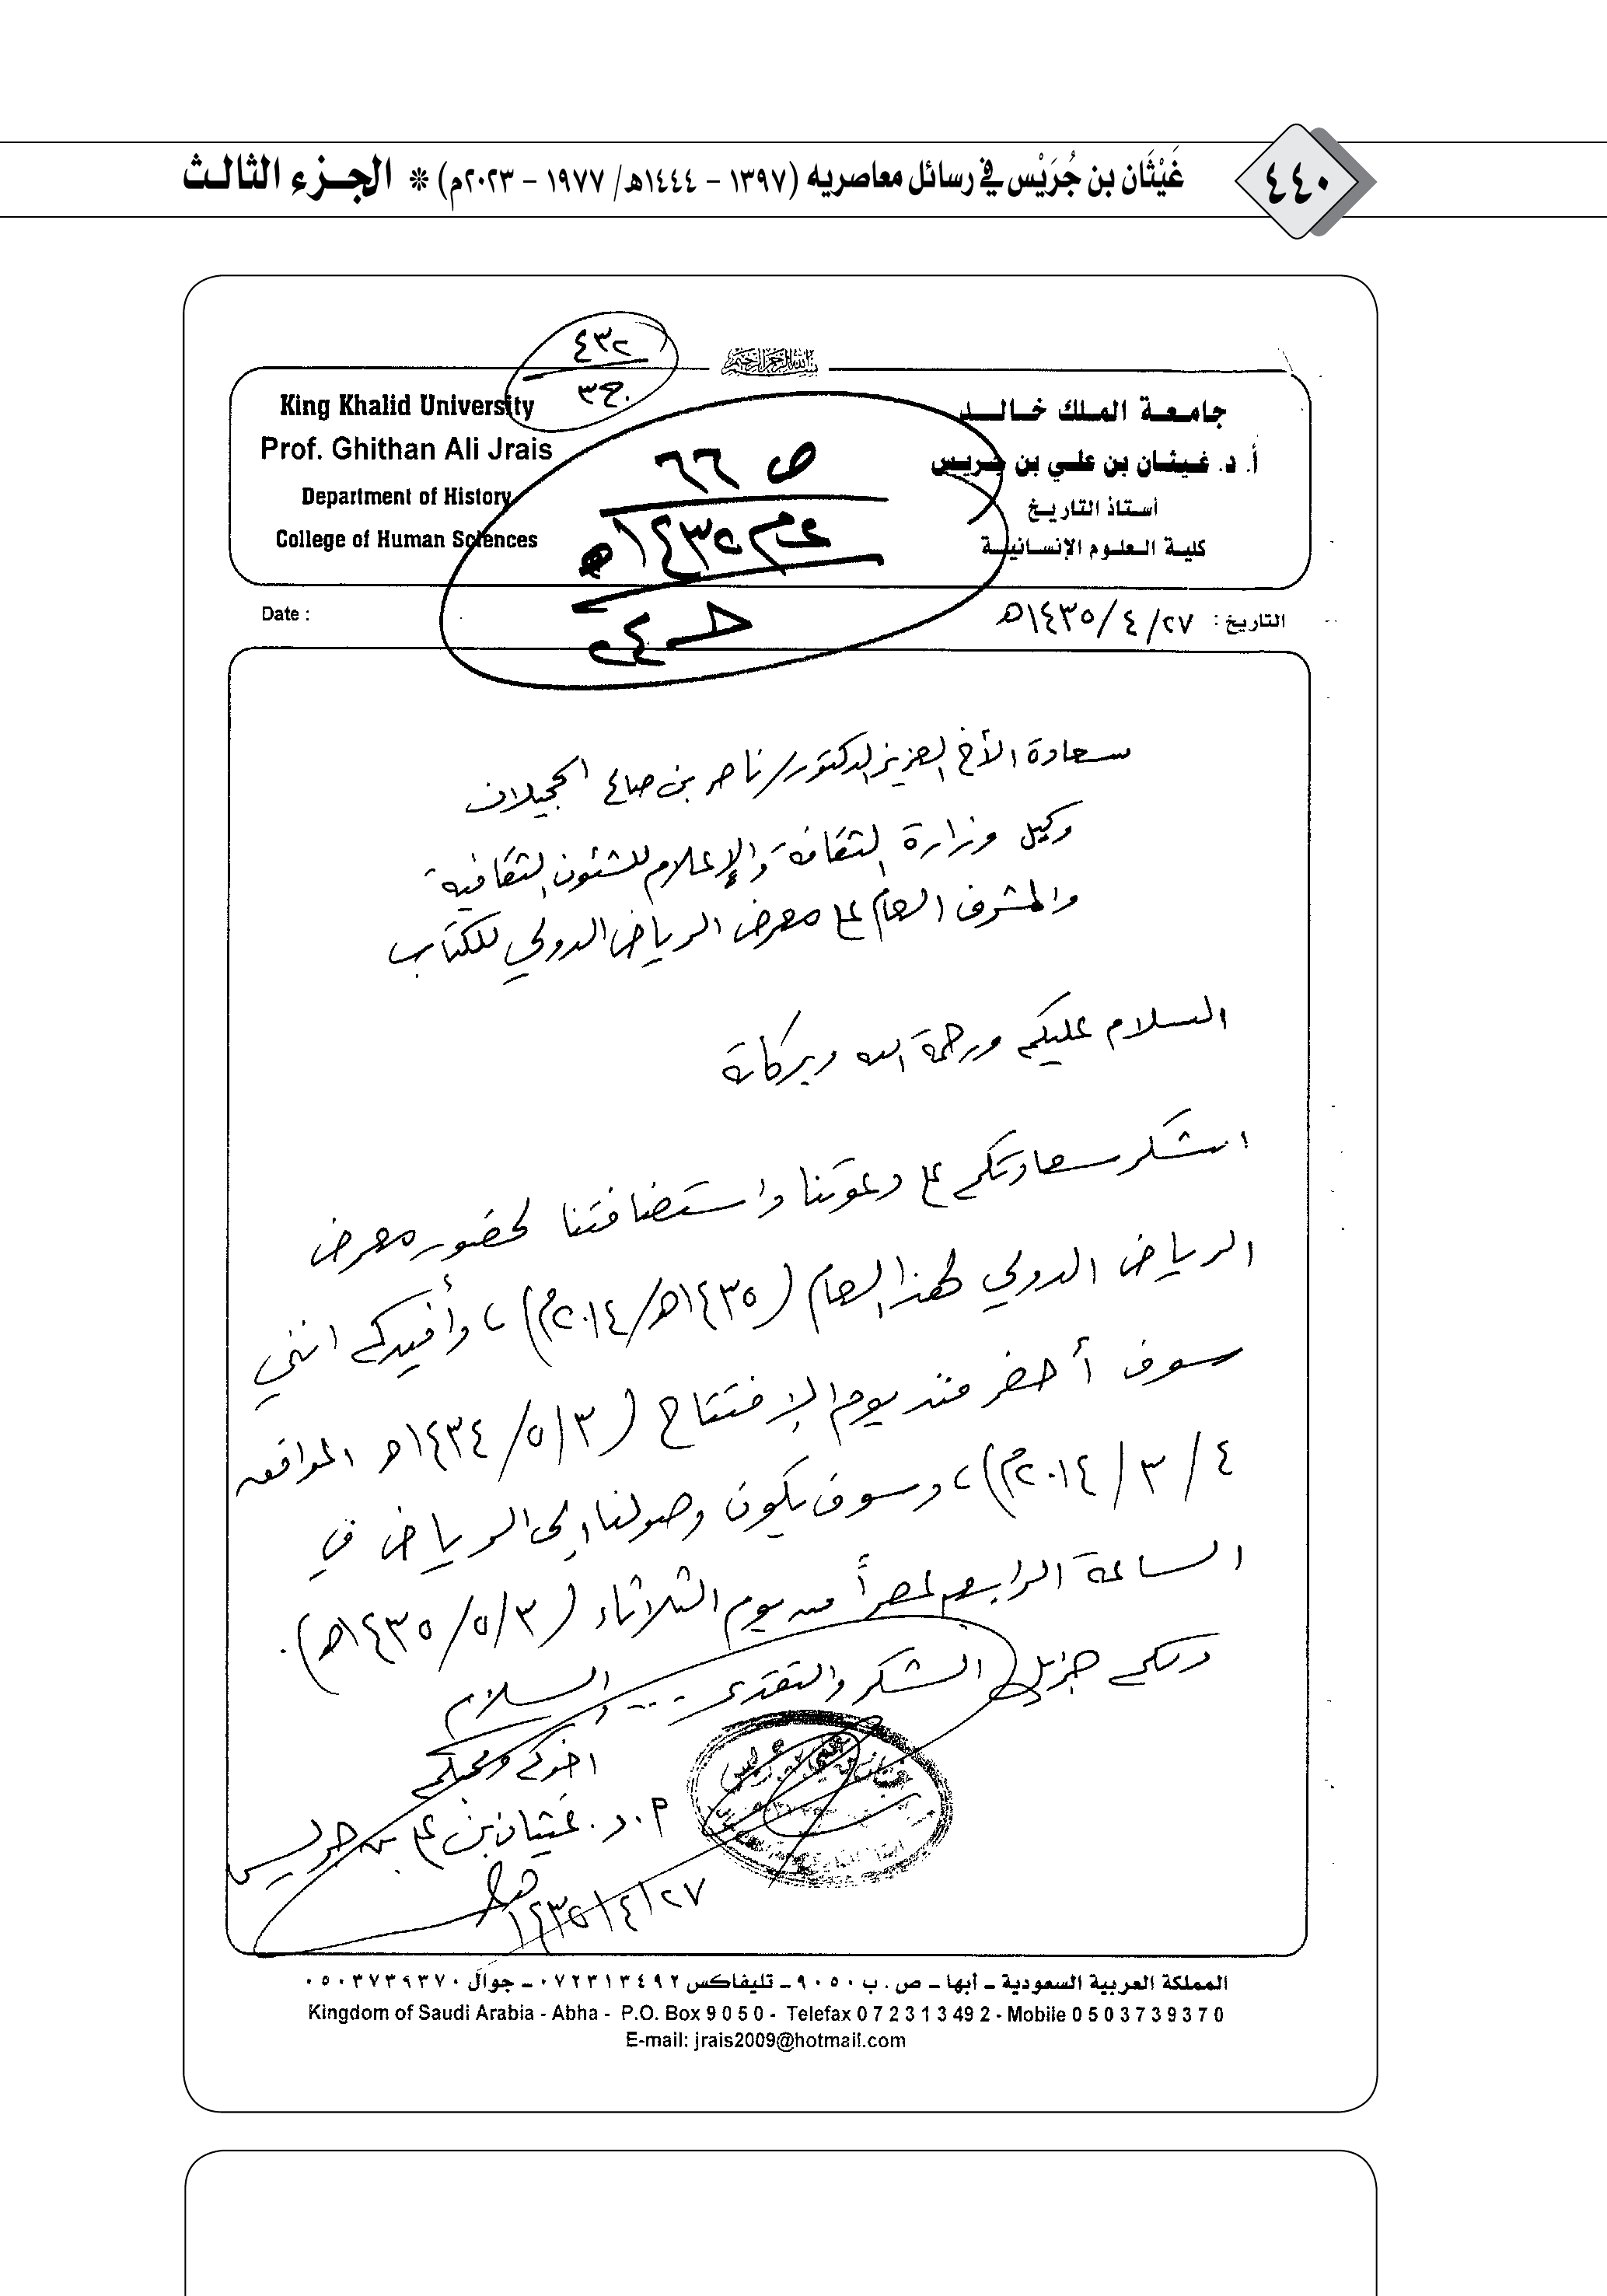 ٤٤٠
غَيْثَان بن جُرَيْس في رسائل معاصريه (١٣٩٧ - ١٤٤٤هـ/ ١٩٧٧ - ٢٠٢٣م) * الجـزء الثالـث
٤٣٢
ج٣
بسم الله الرحمن الرحيم
جامعة الملك خالد
أ. د. غيثان بن علي بن جريس
أستاذ التاريخ
كلية العلوم الإنسانية
King Khalid University
Prof. Ghithan Ali Jrais
Department of History
College of Human Sciences
ص ٦٦
عام ١٤٣٥هـ
التاريخ: ٢٧/ ٤/ ١٤٣٥هـ
Date :
سعادة الأخ العزيز الدكتور/ ناصر بن صالح الحجيلان
وكيل وزارة الثقافة والإعلام للشئون الثقافية
والمشرف العام على معرض الرياض الدولي للكتاب
السلام عليكم ورحمة الله وبركاته
اشكر سعادتكم على دعوتنا واستضافتنا لحضور معرض
الرياض الدولي لهذا العام (١٤٣٥هـ/ ٢٠١٤م)، وأفيدكم انني
سوف أحضر منذ يوم الإفتتاح (٣/ ٥/ ١٤٣٤هـ الموافق
٤/ ٣/ ٢٠١٤م)، وسوف يكون وصولنا إلى الرياض في
الساعة الرابعة عصراً من يوم الثلاثاء (٣/ ٥/ ١٤٣٥هـ).
ولكم جزيل الشكر والتقدير ... والسلام
اخوكم ومحبكم
أ. د. غيثان بن علي بن جريس
٢٧/ ٤/ ١٤٣٥هـ
المملكة العربية السعودية - أبها - ص. ب ٩٠٥٠ - تليفاكس ٠٧٢٣١٣٤٩٢ - جوال ٠٥٠٣٧٣٩٣٧٠
Kingdom of Saudi Arabia - Abha - P.O. Box 9 0 5 0 - Telefax 0 7 2 3 1 3 49 2 - Mobile 0 5 0 3 7 3 9 3 7 0
E-mail: jrais2009@hotmail.com